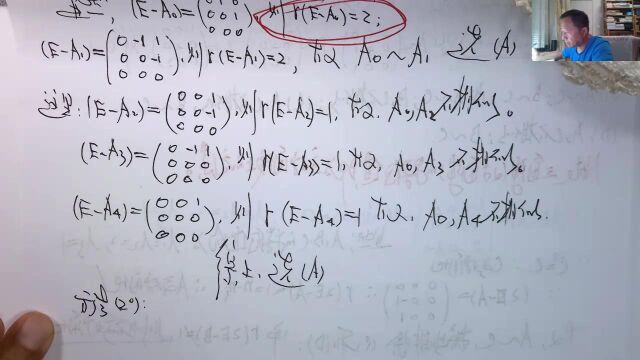 (E-A₀)=(0 0 1 0), 则 r(E-A₀)=2;
(E-A₁)=(0 -1 1 / 0 0 -1 / 0 0 0), 则 r(E-A₁)=2, 故 A₀~A₁ 选(A)
(E-A₂)=(0 0 1 / 0 0 -1 / 0 0 0), 则 r(E-A₂)=1, 故 A₀,A₂不相似。
(E-A₃)=(0 -1 1 / 0 0 0 / 0 0 0), 则 r(E-A₃)=1, 故 A₀,A₃不相似。
(E-A₄)=(0 0 1 / 0 0 0 / 0 0 0), 则 r(E-A₄)=1 故 A₀,A₄不相似.
综上, 选(A)
(2°):